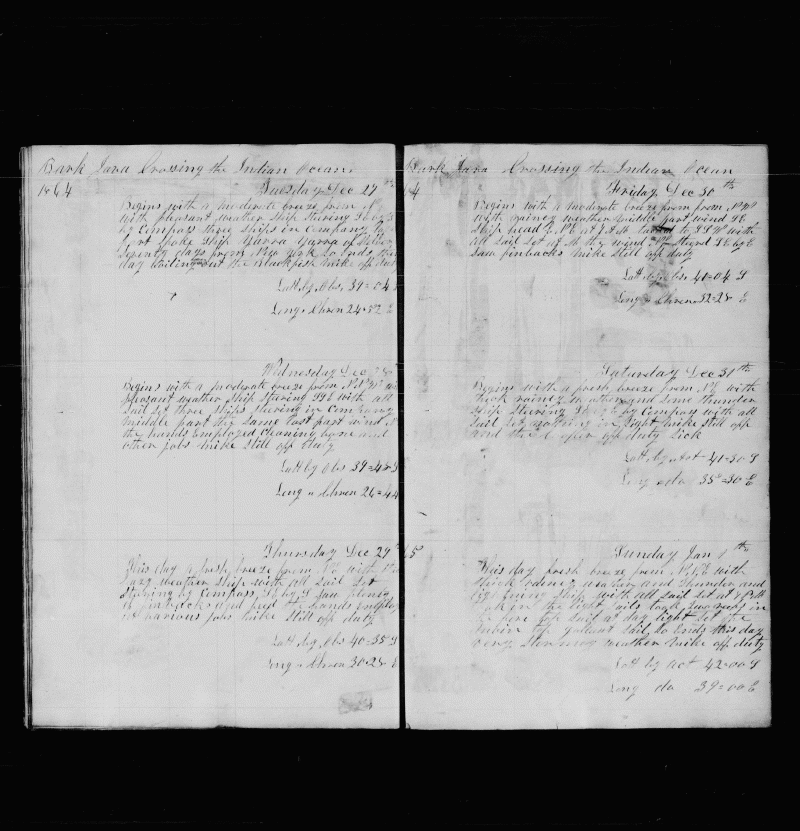 Bark Java Crossing the Indian Ocean
1864 Tuesday Dec 27th
Begins with a moderate breeze from
with pleasant weather Ship Stering SE by S
by Compass three Ships in Company
Spoke Ship Yarra Yarra of
Seventy days from New York So Ends this
day the Blackfish Mike off duty
Latt by Obs 39=04 S
Long " Chron 24=52 E
Wednesday Dec 28
Begins with a moderate breeze from
pleasant weather Ship Stering SSE with all
Sail Set three Ships Stering in Company
Middle part the Same Last part wind
the hands Employed Cleaning bone and
other jobs Mike Still off duty
Latt by Obs 39=48 S
Long " Chron 26=44
Thursday Dec 29th
This day a fresh breeze from with
weather Ship with all Sail Set
Stering by Compass SE by S Saw plenty
of finbacks and the hands employ
at various jobs Mike Still off duty
Latt by Obs 40=35 S
Long " Chron 30=28 E
Bark Java Crossing the Indian Ocean
4 Friday Dec 30th
Begins with a moderate breeze from
with rainey weather Middle part wind SE
Ship head at to SSW with
all Sail Set at wind Steard SE by E
Saw finbacks Mike Still off duty
Latt by Obs 41=04 S
Long " Chron 32=28 E
Saturday Dec 31th
Begins with a fresh breeze from NE with
thick rainey Weather and Some thunder
Ship Steering by Compass with all
Sail Set nothing in Sight Mike Still off
and the Cooper off duty Sick
Latt by act 41=30 S
Long " do 35=30 E
65 Sunday Jan 1th
This day fresh breeze from NNE with
thick rainey weather and thunder and
lightning Ship with all Sail Set at
took in the light Sails took two reefs in
the fore top Sail at day light Set the
top gallant Sail So Ends this day
very weather Mike off duty
Latt by act 42=00 S
Long do 39=00 E